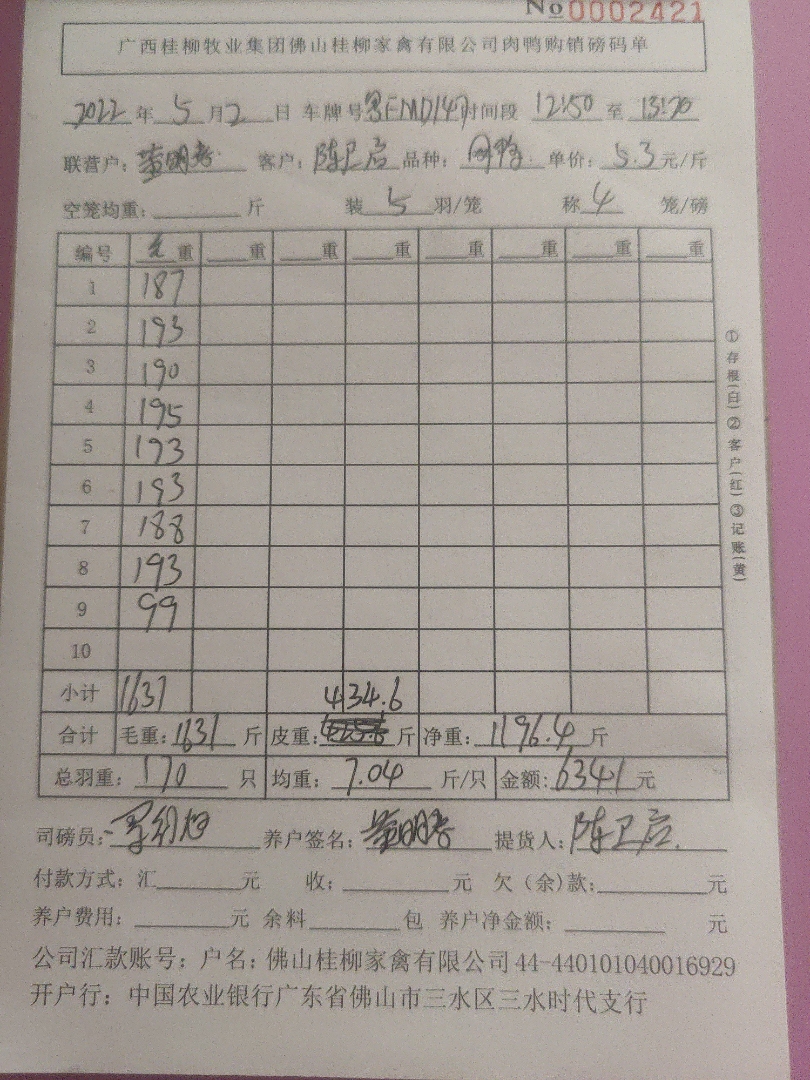 No 0002421
广西桂柳牧业集团佛山桂柳家禽有限公司肉鸭购销磅码单
2022 年 5 月 2 日 车牌号 FMD147 时间段 12:50 至 13:20
联营户: 客户: 陈卫启 品种: 单价: 5.3 元/斤
空笼均重: 斤 装 5 羽/笼 称 4 笼/磅
编号 毛 重 重 重 重 重 重 重 重
1 187
2 193
3 190
4 195
5 193
6 193
7 188
8 193
9 99
10
小计 1631 434.6
合计 毛重: 1631 斤 皮重: 斤 净重: 1196.4 斤
总羽重: 170 只 均重: 7.04 斤/只 金额: 6341 元
司磅员: 养户签名: 提货人: 陈卫启
付款方式: 汇 元 收: 元 欠(余)款: 元
养户费用: 元 余料 包 养户净金额: 元
公司汇款账号: 户名: 佛山桂柳家禽有限公司 44-440101040016929
开户行: 中国农业银行广东省佛山市三水区三水时代支行
①存根(白)②客户(红)③记账(黄)